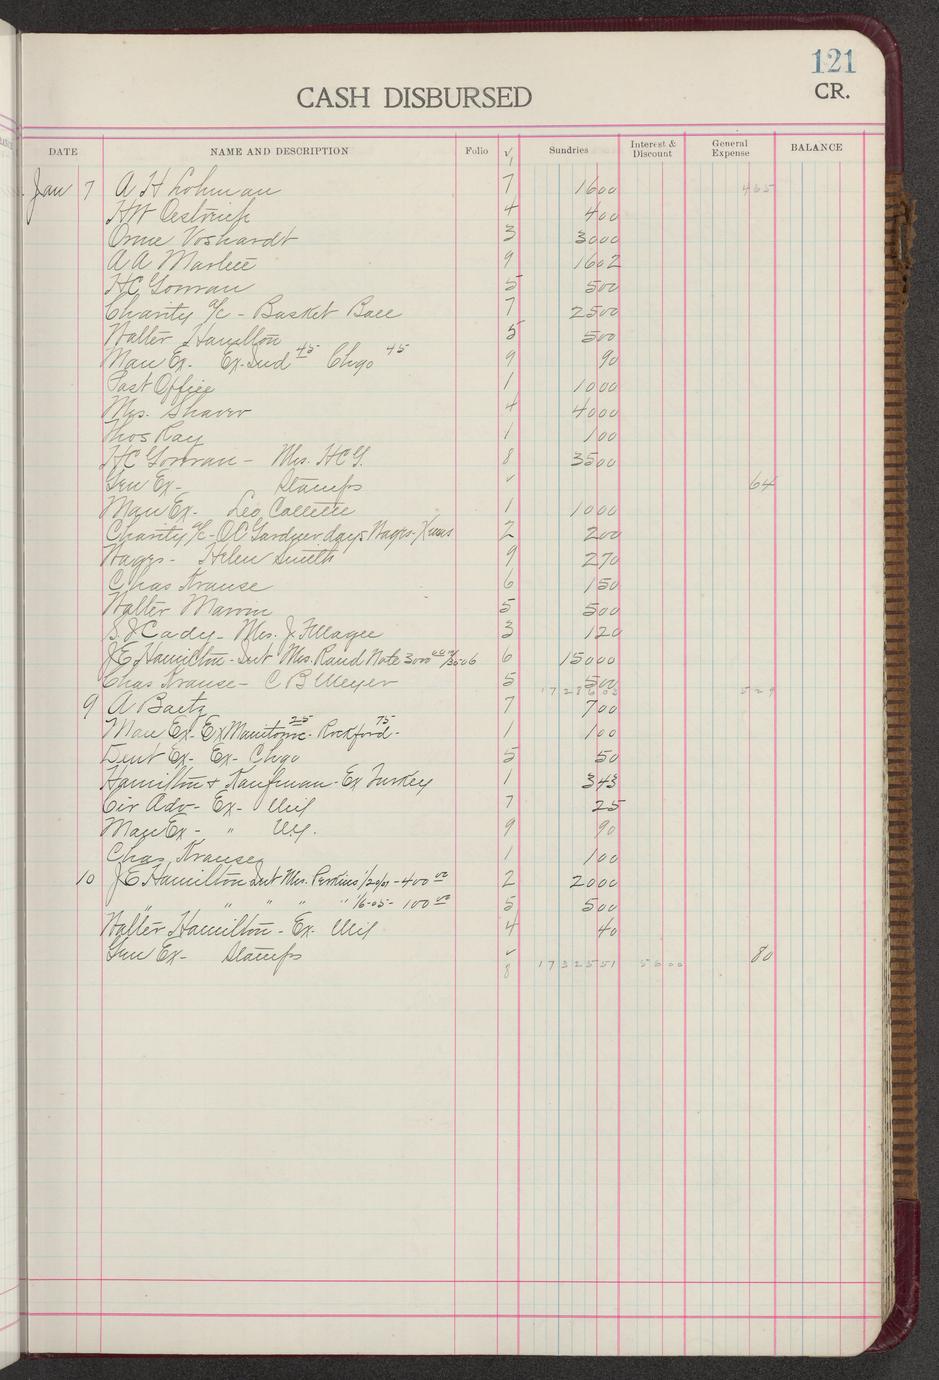 121
CASH DISBURSED
CR.
DATE NAME AND DESCRIPTION Folio √ Sundries Interest & Discount General Expense BALANCE
Jan 7 A H Lohman 7 1600 465
HW Oestreich 4 400
Orme Voshardt 3 3000
A A Marlett 9 1602
HC Gowran 5 500
Charity a/c - Basket Ball 7 2500
Walter Hamilton 5 500
Man Ex. Ex. Ind 45 Chgo 45 9 90
Post Office 1 1000
Mrs. Shaver 4 4000
Thos Kay 1 100
HC Gowran - Mrs. HCG. 8 3500
Gen Ex - Stamps √ 64
Man Ex - Leo 1 1000
Charity a/c - OC Gardner days Wages - Xmas 2 200
Wages - Helen Smith 9 270
Chas Krause 6 150
Walter 5 500
S. J Cady - Mrs. J. 3 120
JE Hamilton - Int Mrs. Rand Note 3000 6 15000
Chas Krause - C B Meyer 5 500
529
9 A Baetz 7 700
Man Ex - Ex Manitowoc 25 - Rockford 75 - 1 100
Ex - Ex - Chgo 5 50
Hamilton & Kaufman - Ex Turkey 1 343
Cir Adv - Ex - Mil 7 25
Man Ex - " 9 90
Chas Krause 1 100
10 JE Hamilton Int Mrs. Perkins - 400 00 2 2000
" " " " " 1/6-05 - 100 00 5 500
Walter Hamilton - Ex - Mil 4 40
Gen Ex - Stamps √ 80
8 1732551 5600